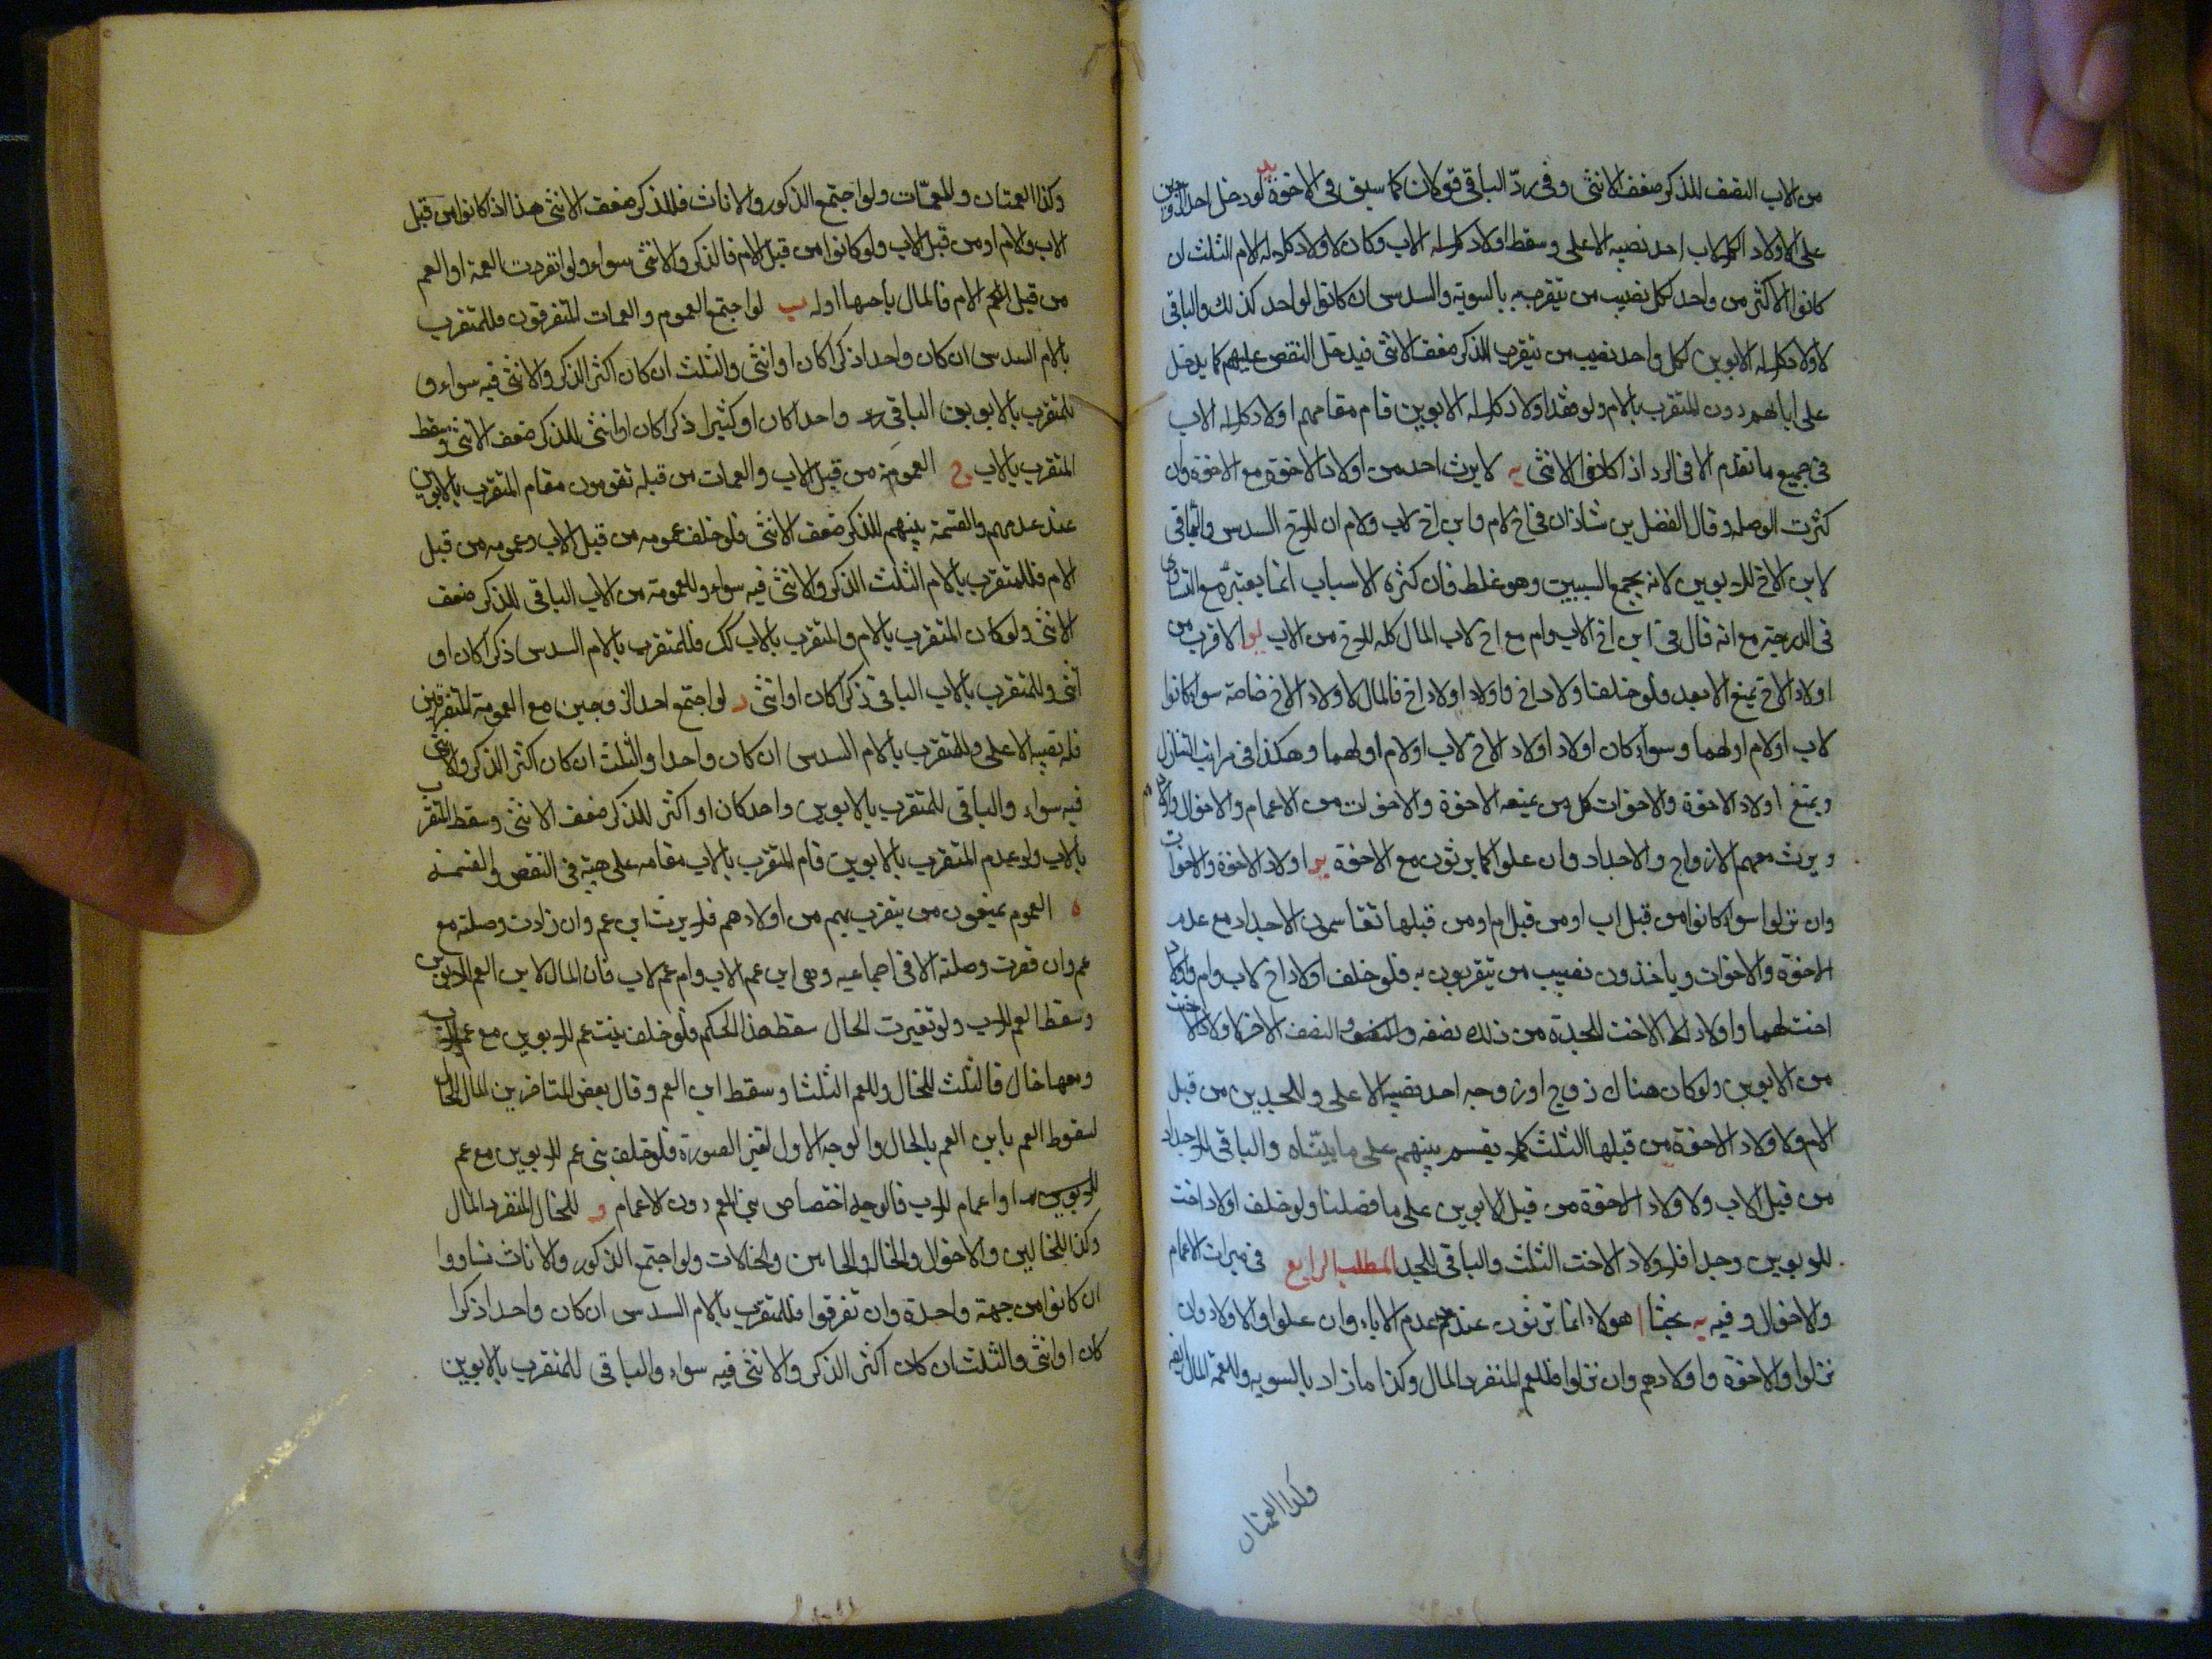 من الاب النصف للذكر ضعف الانثى وفى ردّ الباقى قولان كما سبق فى الاخوة يد لو دخل احد الزوجين
على الاولاد الكلاب اخذ نصيبه الاعلى وسقط اولاد كلاله الاب وكان لاولاد كلاله الام الثلث ان
كانوا لاكثر من واحد لكل نصيب من يتقرب به بالسوية والسدس ان كانوا لواحد كذلك والباقى
لاولاد كلاله الابوين لكل واحد نصيب من يتقرب للذكر ضعف الانثى فيدخل النقص عليهم كما يدخل
على ابائهم دون المتقرب بالام ولو فقد اولاد كلاله الابوين قام مقامهم اولاد كلاله الاب
فى جميع ما تقدم الا فى الرد اذا كانوا لانثى يه لا يرث احد من اولاد الاخوة مع الاخوة وان
كثرت الوصله وقال الفضل بن شاذان فى اخ لام وابن اخ لاب ولام ان للاخ السدس والباقى
لابن الاخ للابوين لانه يجمع السببين وهو غلط فان كثرة الاسباب انما يعتبر مع التساوى
فى الدرجة مع انه قال فى ابن اخ لاب وام مع اخ لاب المال كله للاخ من الاب يو الاقرب من
اولاد الاخ يمنع الابعد فلو خلف اولاد اخ واولاد اولاد اخ فالمال لاولاد الاخ خاصة سواء كانوا
لاب او لام او لهما وسواء كان اولاد اولاد الاخ لاب او لام او لهما وهكذا فى مراتب التنازل
ويمنع اولاد الاخوة والاخوات كل من يمنعه الاخوة والاخوات من الاعمام والاخوال واولادهم
ويرث معهم الازواج والاجداد وان علوا كما يرثون مع الاخوة يز اولاد الاخوة والاخوات
وان نزلوا سواء كانوا من قبل اب او من قبل ام او من قبلهما تقاسمون الاجداد مع عدم
الاخوة والاخوات وياخذون نصيب من يتقربون به فلو خلف اولاد اخ لاب وام واولاد
اخت لهما واولاد الاخت للجدة من ذلك نصفه والنصف النصف الاخر لاولاد الاخت
من الابوين ولو كان هناك زوج او زوجه اخذ نصيبه الاعلى وللجدين من قبل
الام ولاولاد الاخوة من قبلها الثلث يقسم بينهم على ما بيّناه والباقى للاجداد
من قبل الاب ولاولاد الاخوة من قبل الابوين على ما فصلنا ولو خلف اولاد اخت
للابوين وجدا فلاولاد الاخت الثلث والباقى للجد المطلب الرابع فى ميراث الاعمام
والاخوال وفيه يه بحثا ا هولاء انما يرثون عند عدم الاباء وان علوا والاولاد وان
نزلوا والاخوة واولادهم وان نزلوا فللعم المنفرد المال وكذا ما زاد بالسويه وللعمة المال ايضه
وكذا العمتان
وكذا العمتان وللعمّات ولو اجتمع الذكور والاناث فللذكر ضعف الانثى هذا اذا كانوا من قبل
الاب والام او من قبل الاب ولو كانوا من قبل الام فالذكر والانثى سواء ولو انفردت العمة او العم
من قبل الام فالمال باجمعها اوله ب لو اجتمع العموم والعمات المتفرقون فللمتقرب
بالام السدس ان كان واحدا ذكرا كان او انثى والثلث ان كان اكثر الذكر والانثى فيه سواء و
للمتقرب بالابوين الباقى واحدا كان او كثيرا ذكرا كان او انثى للذكر ضعف الانثى وسقط
المتقرب بالاب ج العمومة من قبل الاب والعمات من قبله تقومون مقام المتقرب بالابوين
عند عدمهم والقسمة بينهم للذكر ضعف الانثى فلو خلف عمومه من قبل الاب وعمومه من قبل
الام فللمتقرب بالام الثلث الذكر والانثى فيه سواء وللعمومة من الاب الباقى للذكر ضعف
الانثى ولو كان المتقرب بالام والمتقرب بالاب كك فللمتقرب بالام السدس ذكرا كان او
انثى وللمتقرب بالاب الباقى ذكرا كان او انثى د لو اجتمع احد الزوجين مع العمومة المتفرقين
فله نصيبه الاعلى وللمتقرب بالام السدس ان كان واحدا والثلث ان كان اكثر الذكر والانثى
فيه سواء والباقى للمتقرب بالابوين واحد كان او اكثر للذكر ضعف الانثى وسقط المتقرب
بالاب ولو عدم المتقرب بالابوين قام المتقرب بالاب مقامه على هيئته فى النقص والقسمة
ه العموم يمنعون من يتقرب بهم من اولادهم فلا يرث ابن عم وان زادت وصلته مع
عم وان قصرت وصلته الا فى اجماعيه وهى ابن عم لاب وام مع عم لاب فان المال لابن العم للابوين
وسقط العم للاب ولو تغيرت الحال سقط هذا الحكم فلو خلف بنت عم للابوين مع عم للاب
ومعها خال فالثلث للخال وللعم الثلثا وسقط ابن العم وقال بعض المتاخرين المال للخال
لسقوط العم بابن العم بالخال والوجه الاول لتغير الصورة فلو خلف بنى عم للابوين مع عم
للابوين او اعمام للاب فالوجه اختصاص بنى العم دون الاعمام و للخال المنفرد المال
وكذا للخالين والاخوال والخاله والخالتين والخالات ولو اجتمع الذكور والاناث تساووا
ان كانوا من جهة واحدة وان تفرقوا فللمتقرب بالام السدس ان كان واحدا ذكرا
كان او انثى والثلث ان كان اكثر الذكر والانثى فيه سواء والباقى للمتقرب بالابوين